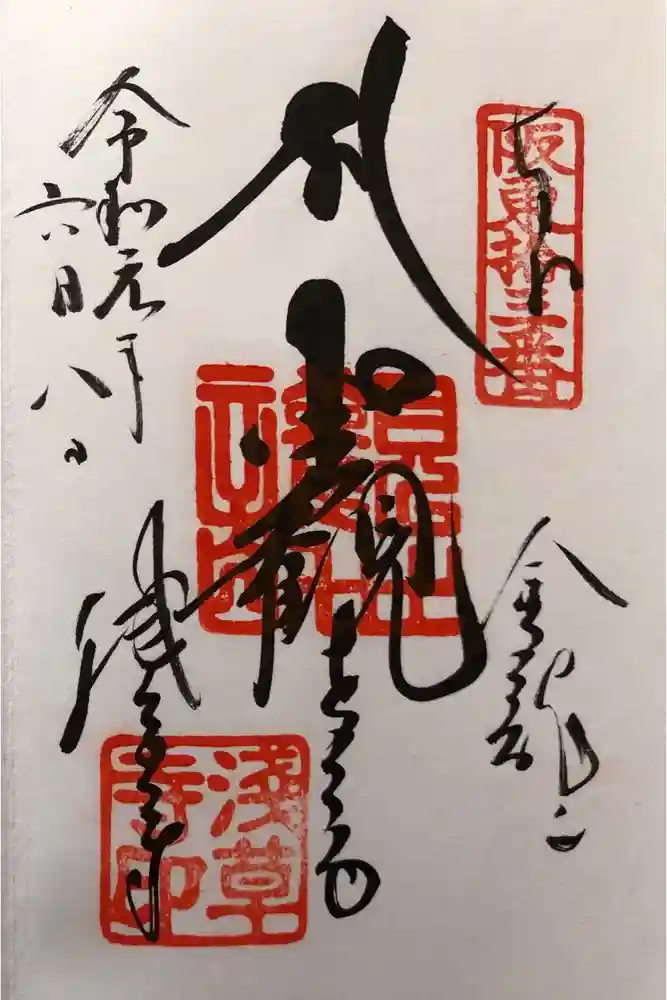 阪東拾三番
奉拝
金龍山
聖観世音
浅草寺
浅草寺印
令和元年
六月八日